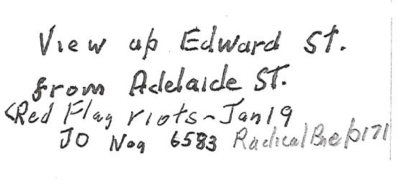 View up Edward St.
from Adelaide ST.
<Red Flag riots~Jan19
JO Neg 6583 Radical Bne/p171